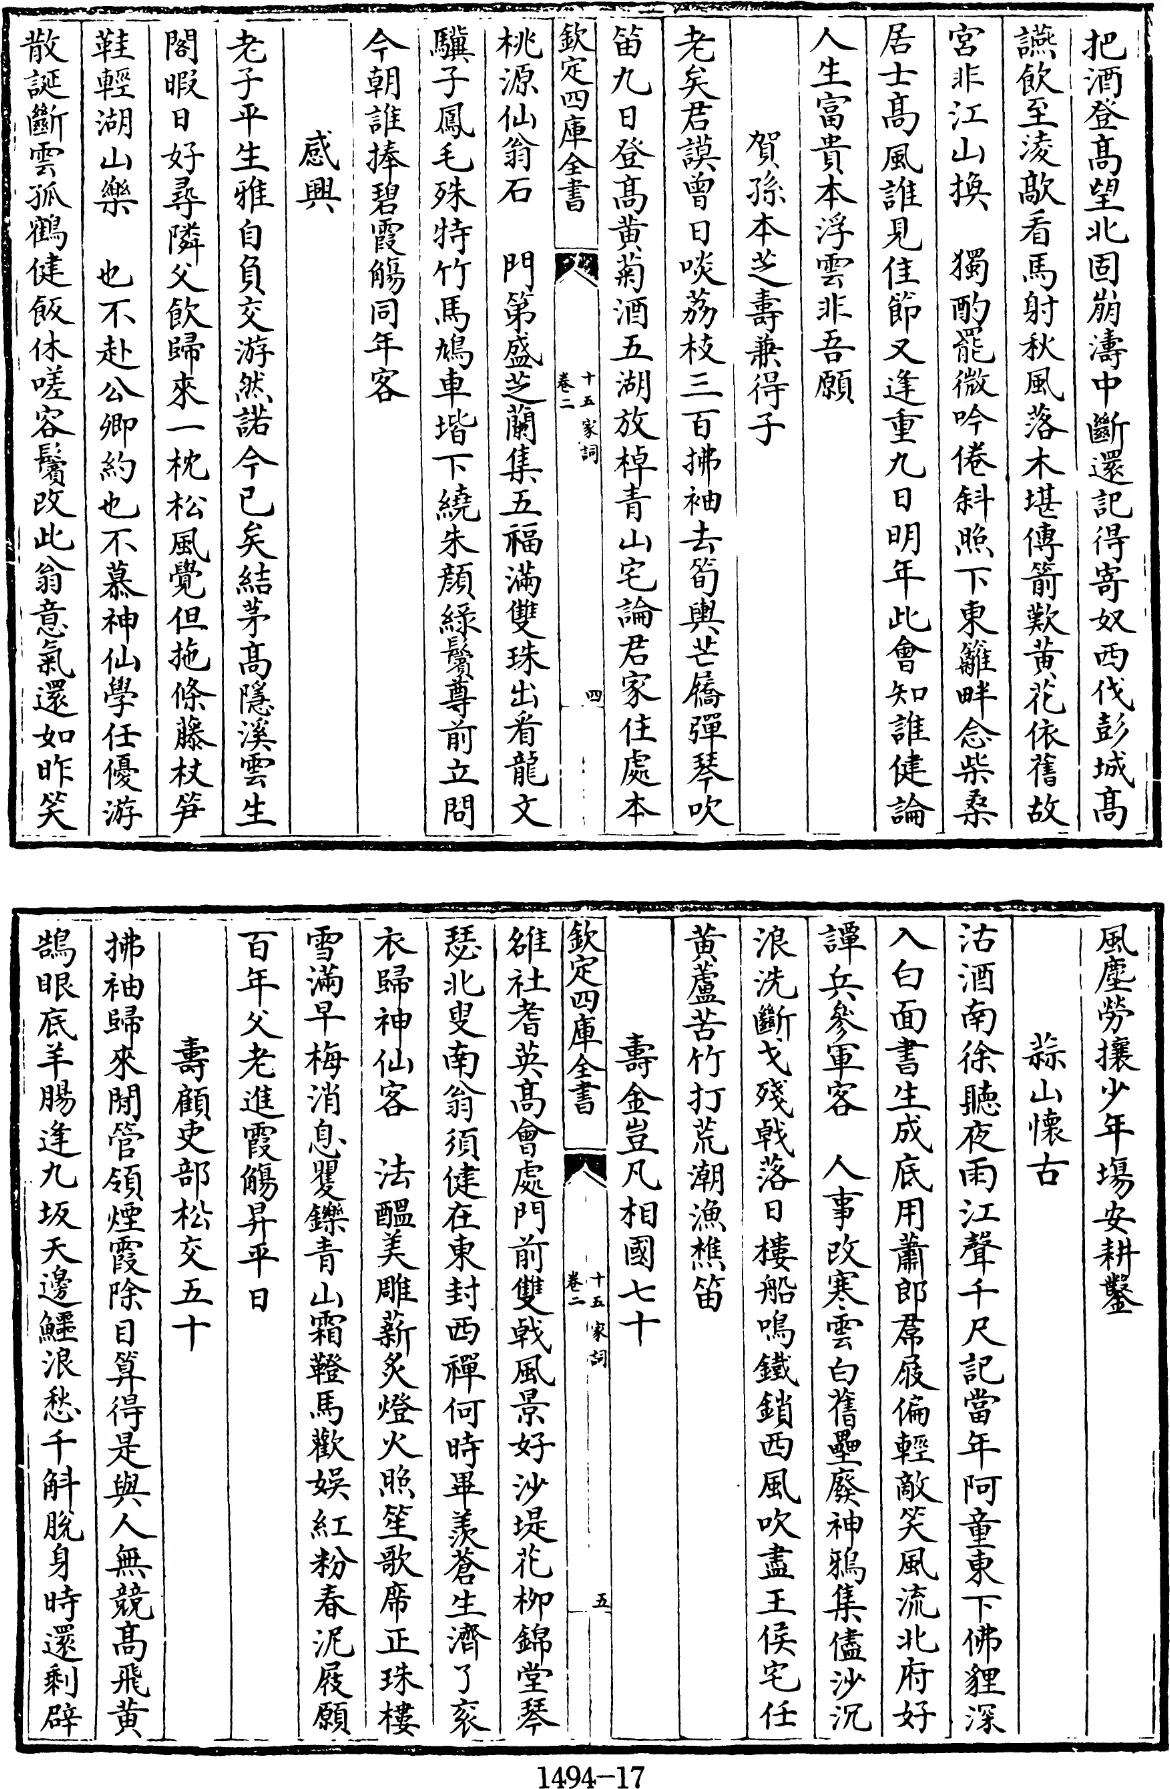 把酒登髙望北固崩濤中斷還記得寄奴西伐彭城髙
讌飲至凌歊看馬射秋風落木堪傳箭歎黄花依舊故
宫非江山換　獨酌罷微吟倦斜照下東籬畔念柴桑
居士髙風誰見佳節又逢重九日明年此會知誰健論
人生富貴本浮雲非吾願
賀孫本芝壽兼得子
老矣君謨曾日啖荔枝三百拂袖去筍輿芒屩彈琴吹
笛九日登髙黄菊酒五湖放棹青山宅論君家住處本
欽定四庫全書
十五家詞
卷二
四
桃源仙翁石　門第盛芝蘭集五福滿雙珠出看龍文
驥子鳳毛殊特竹馬鳩車堦下繞朱顔緑鬢尊前立問
今朝誰捧碧霞觴同年客
感興
老子平生雅自負交游然諾今已矣結茅髙隱溪雲生
閣暇日好尋隣父飲歸來一枕松風覺但拖條藤杖笋
鞋輕湖山樂　也不赴公卿約也不慕神仙學任優游
散誕斷雲孤鶴健飯休嗟容鬢改此翁意氣還如昨笑
風塵勞攘少年塲安耕鑿
蒜山懷古
沽酒南徐聽夜雨江聲千尺記當年阿童東下佛貍深
入白面書生成底用蕭郎帬屐偏輕敵笑風流北府好
譚兵參軍客　人事改寒雲白舊壘廢神鴉集儘沙沉
浪洗斷戈殘戟落日樓船鳴鐵鎖西風吹盡王侯宅任
黄蘆苦竹打荒潮漁樵笛
壽金豈凡相國七十
欽定四庫全書
十五家詞
卷二
五
雒社耆英髙會處門前雙戟風景好沙堤花柳錦堂琴
瑟北叟南翁須健在東封西禪何時畢羡蒼生濟了衮
衣歸神仙客　法醞美雕薪炙燈火照笙歌席正珠樓
雪滿早梅消息矍鑠青山霜鞚馬歡娱紅粉春泥屐願
百年父老進霞觴昇平日
壽顧吏部松交五十
拂袖歸來閒管領煙霞除目算得是與人無競髙飛黄
鵠眼底羊腸逢九坂天邊鱷浪愁千斛脫身時還剩辟
1494-17